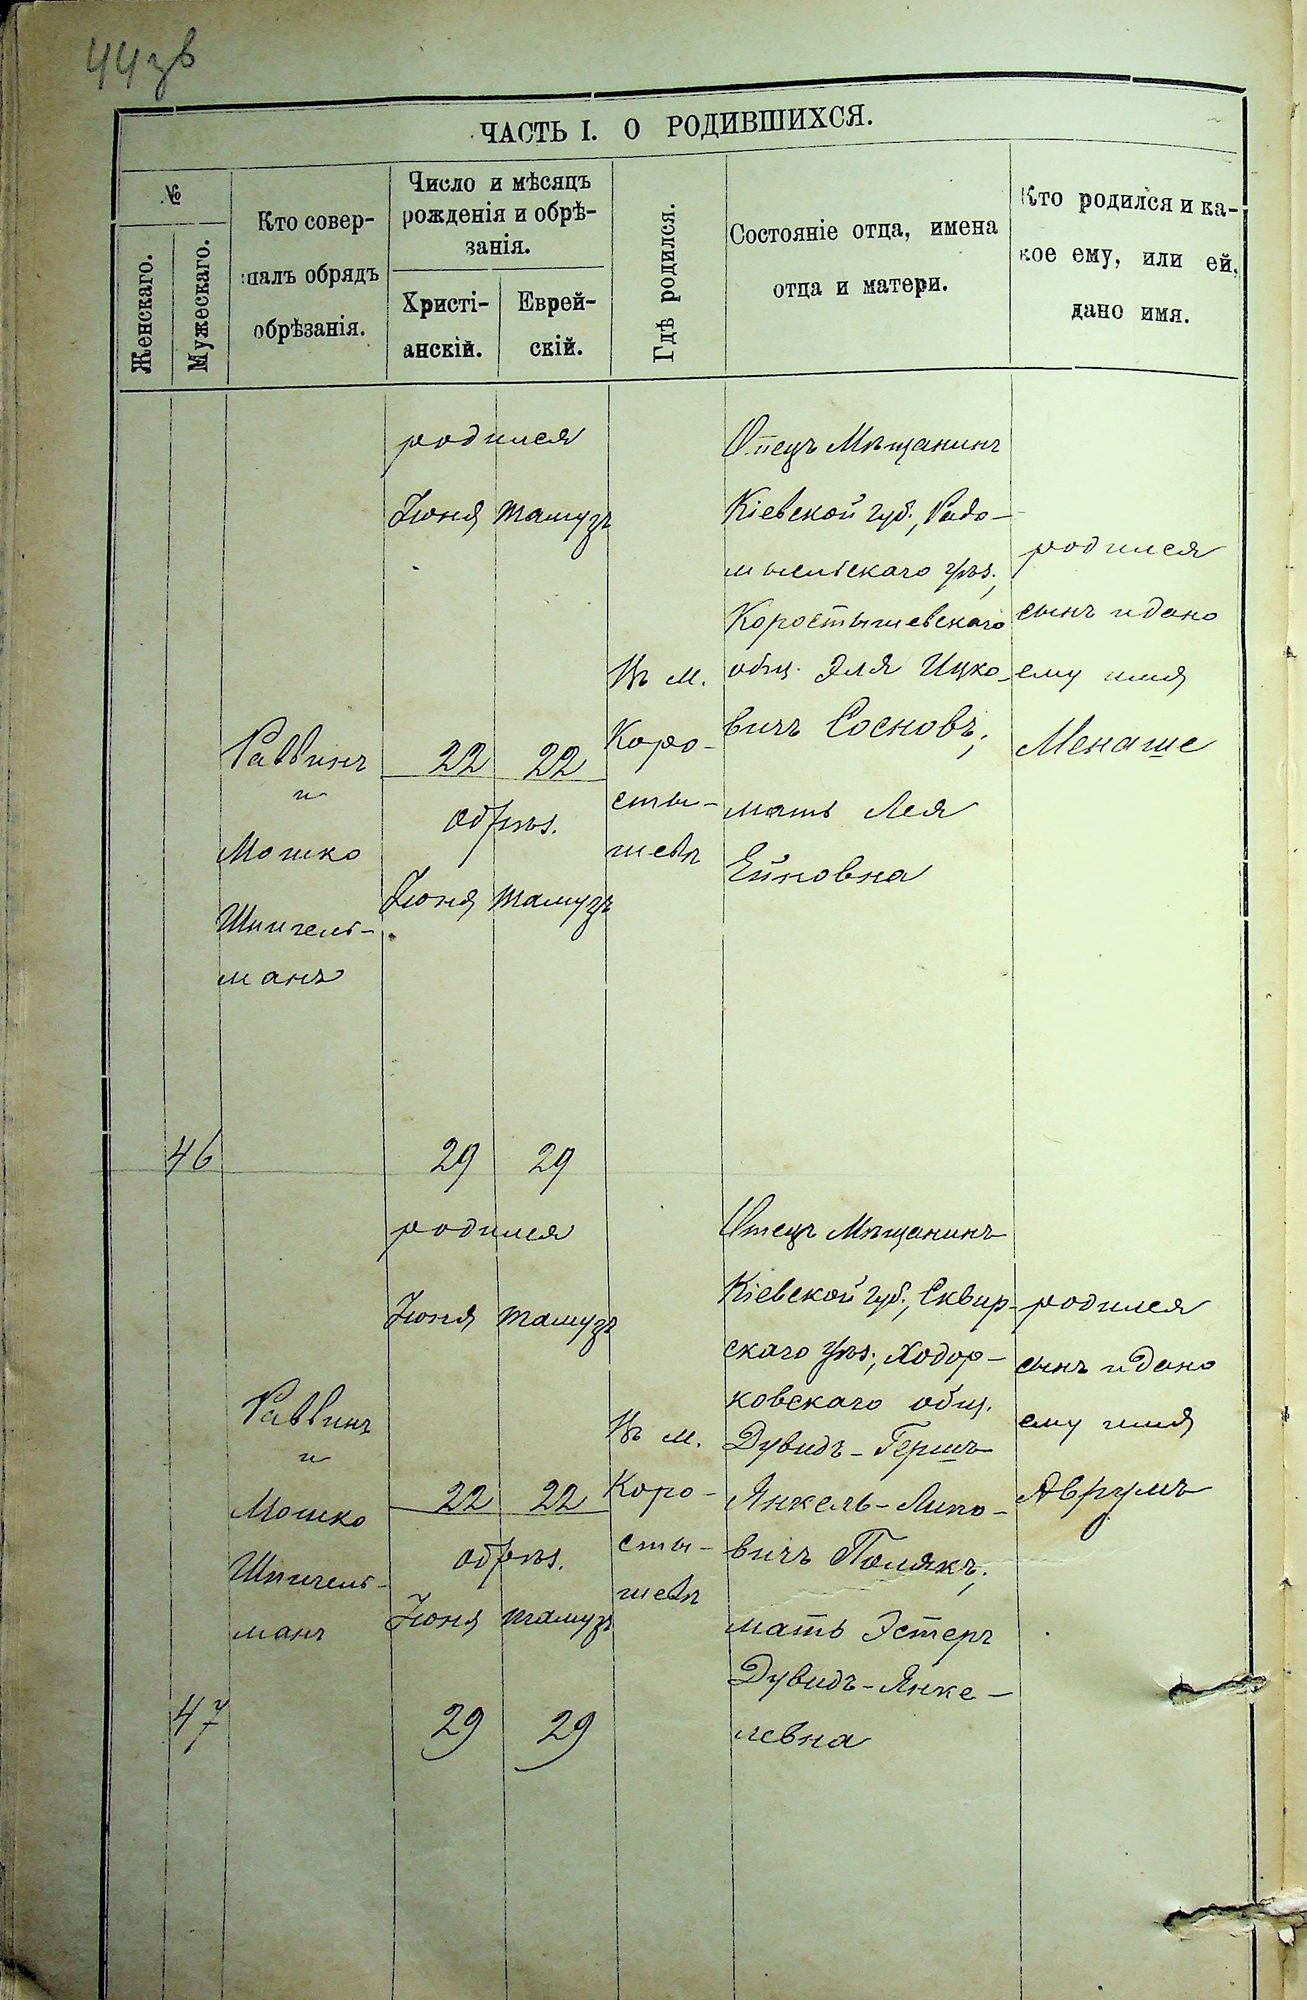 44 зв
ЧАСТЬ I. О РОДИВШИХСЯ.
№
Женскаго.
Мужескаго.
Кто совер-
шалъ обрядъ
обрѣзанія.
Число и мѣсяцъ
рожденія и обрѣ-
занія.
Христі-
анскій.
Еврей-
скій.
Гдѣ родился.
Состояніе отца, имена
отца и матери.
Кто родился и ка-
кое ему, или ей,
дано имя.
46
Раввинъ
и
Мошко
Шпигель-
манъ
родился
Іюня Тамузъ
22 22
обрѣз.
Іюня Тамузъ
29 29
Въ м.
Коро-
сты-
шевѣ
Отецъ Мѣщанинъ
Кіевской губ., Радо-
мысльскаго уѣз.,
Коростышевскаго
общ. Эля Ицко-
вичъ Сосновъ;
мать Лея
Ейновна
родился
сынъ и дано
ему имя
Менаше
47
Раввинъ
и
Мошко
Шпигель-
манъ
родился
Іюня Тамузъ
22 22
обрѣз.
Іюня Тамузъ
29 29
Въ м.
Коро-
сты-
шевѣ
Отецъ Мѣщанинъ
Кіевской губ., Сквир-
скаго уѣз., Ходор-
ковскаго общ.
Дувидъ-Гершъ
Янкель-Липо-
вичъ Полякъ;
мать Эстеръ
Дувидъ-Янке-
левна
родился
сынъ и дано
ему имя
Аврумъ